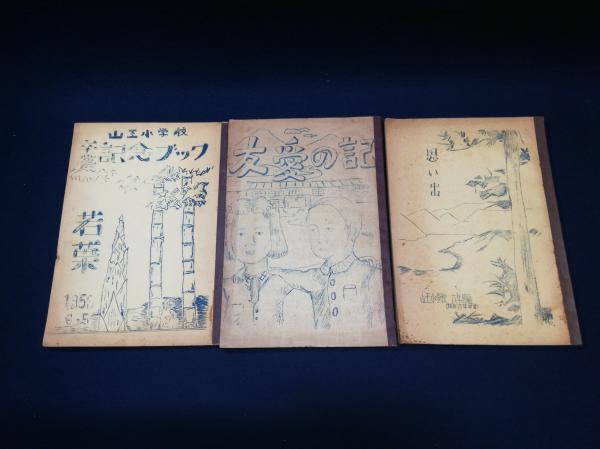 山王小学校
卒業記念ブック
若葉
1956
友愛の記
思い出